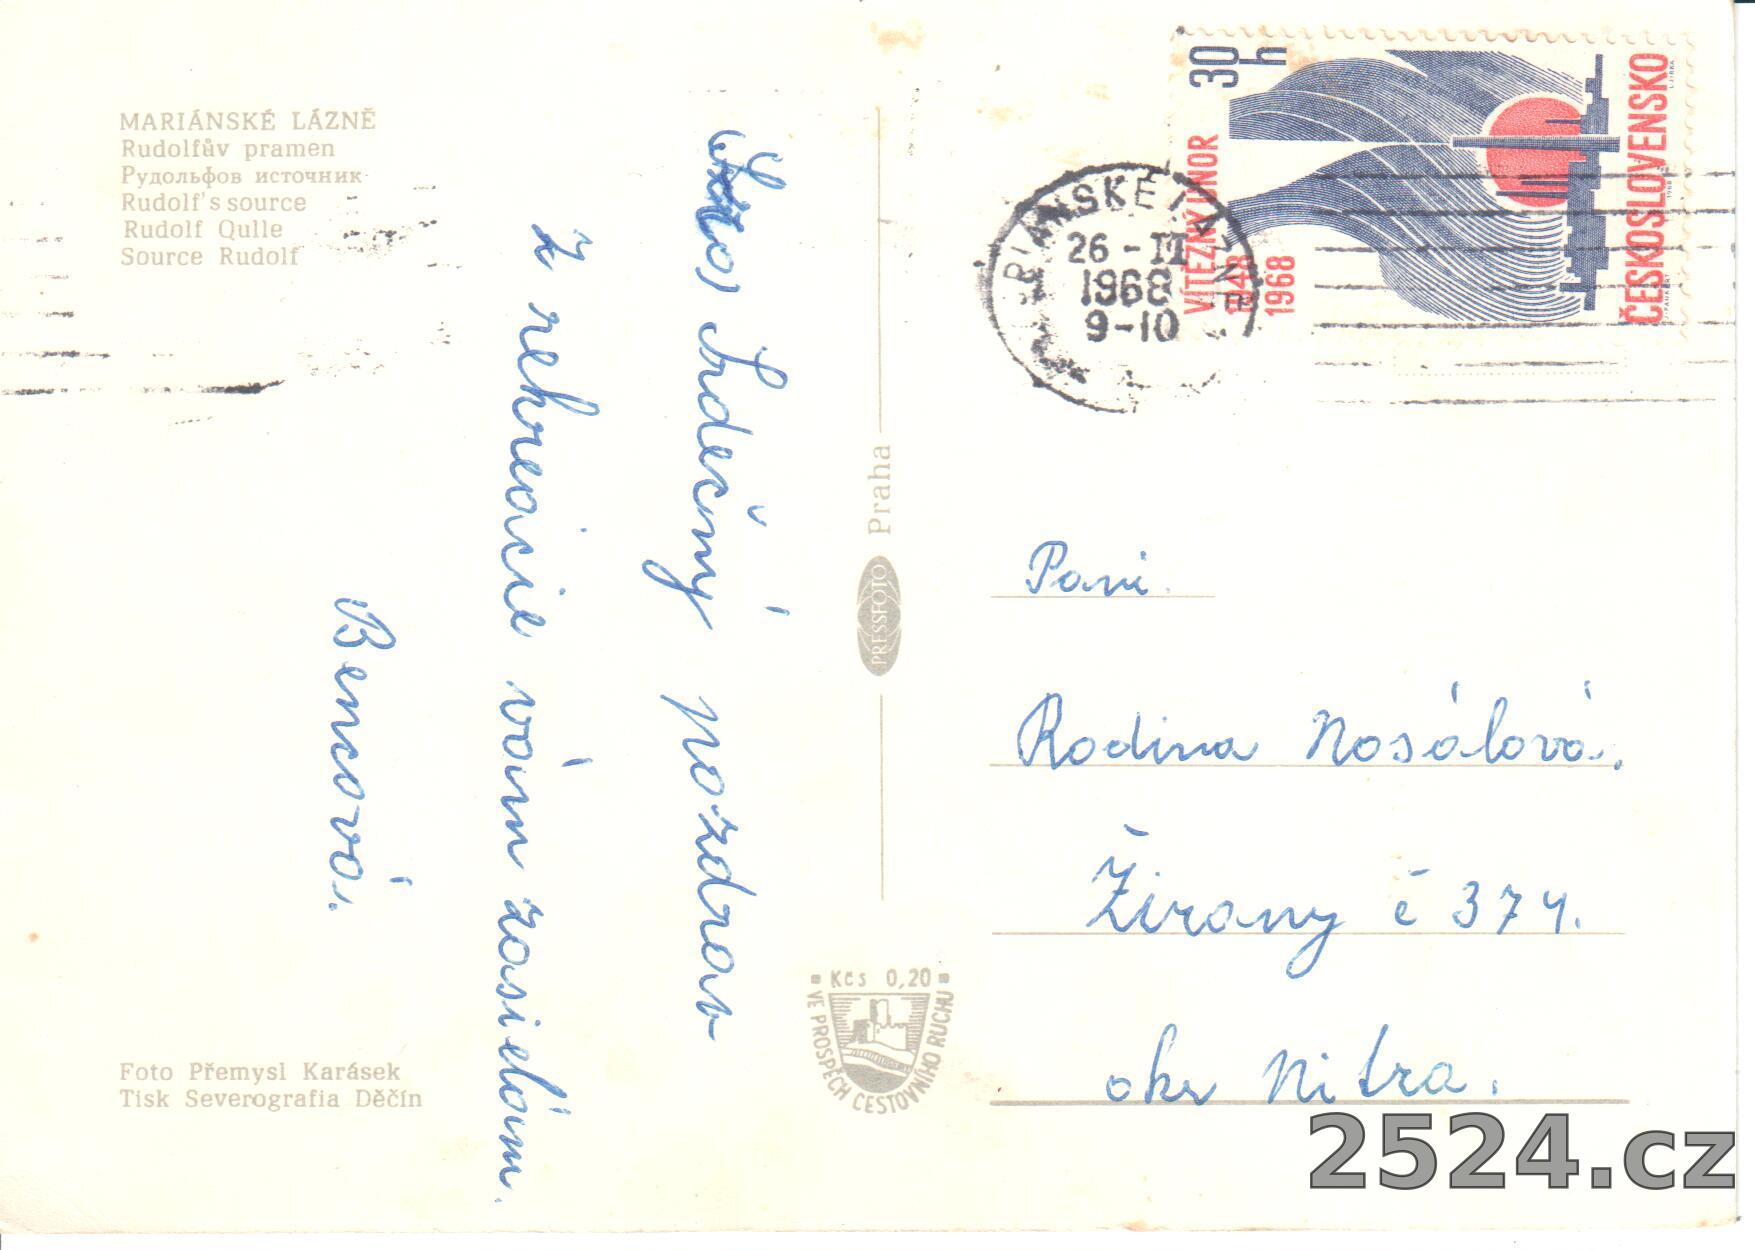 MARIÁNSKÉ LÁZNĚ
Rudolfův pramen
Рудольфов источник
Rudolf's source
Rudolf Qulle
Source Rudolf
Srdečný pozdrav
z rekreacie vám zasielám.
Bencová.
Foto Přemysl Karásek
Tisk Severografia Děčín
Praha
PRESSFOTO
Kčs 0,20
VE PROSPĚCH CESTOVNÍHO RUCHU
30 h
VÍTĚZNÝ ÚNOR
1948
1968
ČESKOSLOVENSKO
RIÁNSKÉ LÁZNĚ
26 - II
1968
9-10
Pani.
Rodina Nosálová.
Žirany č 374.
okr Nitra.
2524.cz